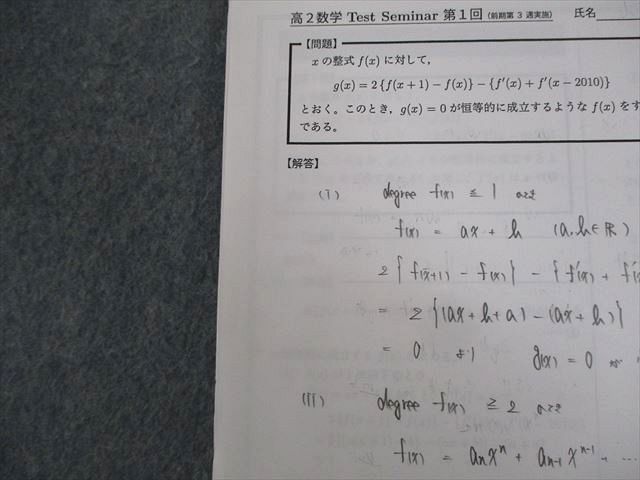 高2数学 Test Seminar 第1回 (前期第 3 週実施) 氏名
【問題】
x の整式 f(x) に対して,
g(x) = 2{f(x+1) − f(x)} − {f'(x) + f'(x−2010)}
とおく。このとき, g(x) = 0 が恒等的に成立するような f(x) をす
である。
【解答】
(I) degree f(x) ≦ 1 のとき
f(x) = ax + b (a, b ∈ ℝ)
2{f(x+1) − f(x)} − {f'(x) + f'
= 2{(ax + b + a) − (ax + b)}
= 0 より g(x) = 0
(II) degree f(x) ≧ 2 のとき
f(x) = aₙxⁿ + aₙ₋₁xⁿ⁻¹ + ...